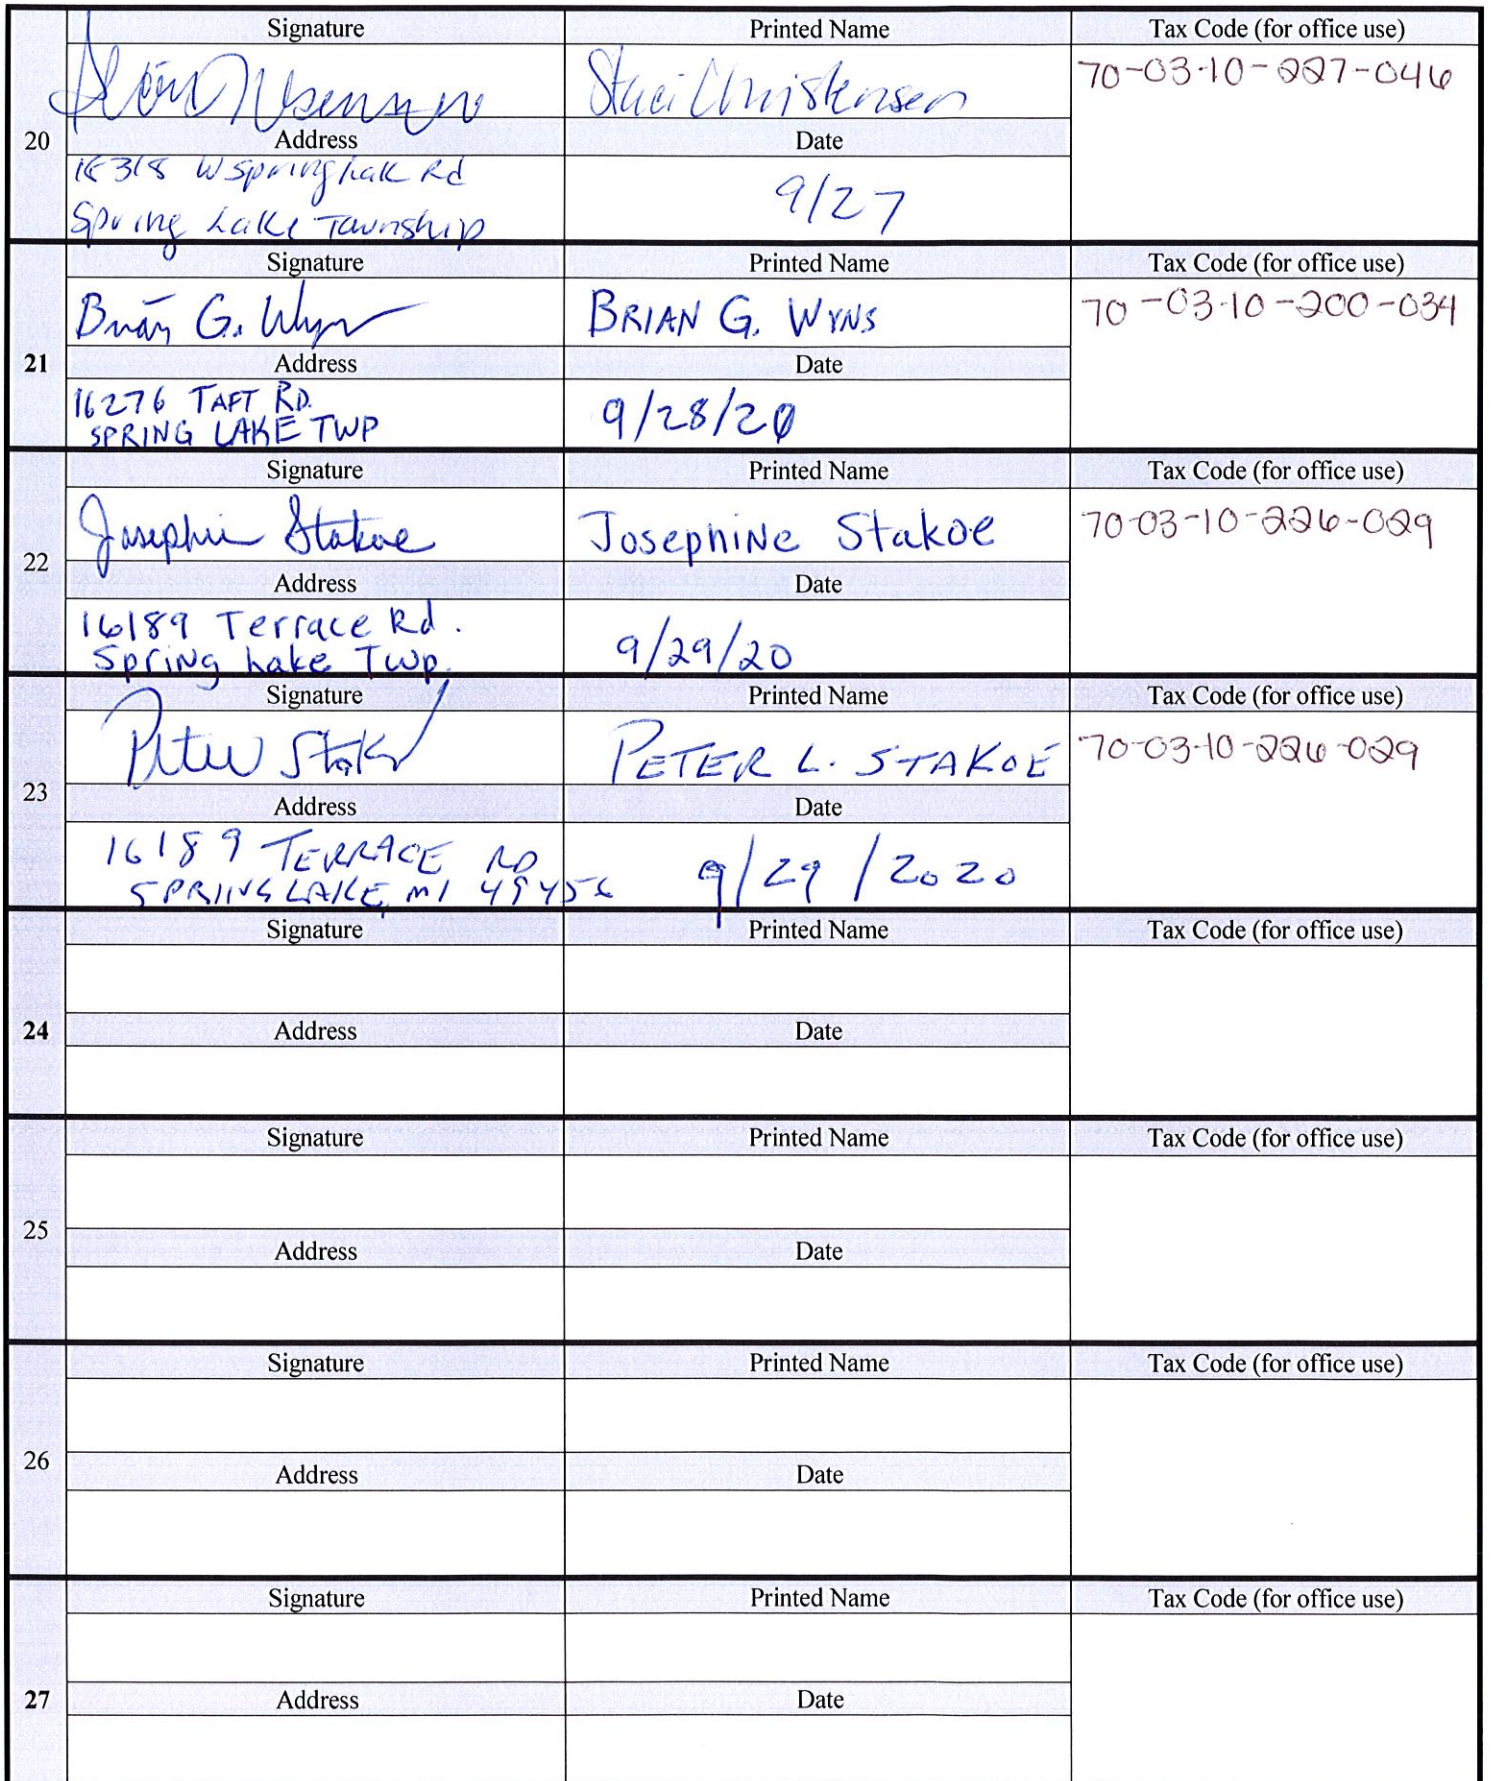 Signature Printed Name Tax Code (for office use)
Staci Christensen 70-03-10-227-046
20
Address Date
W Spring Lake Rd
Spring Lake Township
9/27
Signature Printed Name Tax Code (for office use)
Brian G. Wyns BRIAN G. WYNS 70-03-10-200-034
21
Address Date
16276 TAFT RD.
SPRING LAKE TWP
9/28/20
Signature Printed Name Tax Code (for office use)
Josephine Stakoe Josephine Stakoe 70-03-10-226-029
22
Address Date
16189 Terrace Rd.
Spring Lake Twp.
9/29/20
Signature Printed Name Tax Code (for office use)
Peter Stakoe PETER L. STAKOE 70-03-10-226-029
23
Address Date
16189 TERRACE RD
SPRING LAKE, MI 49456
9/29/2020
Signature Printed Name Tax Code (for office use)
24
Address Date
Signature Printed Name Tax Code (for office use)
25
Address Date
Signature Printed Name Tax Code (for office use)
26
Address Date
Signature Printed Name Tax Code (for office use)
27
Address Date